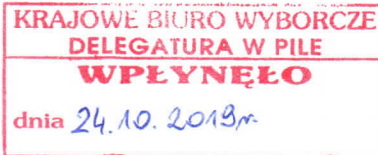 KRAJOWE BIURO WYBORCZE
DELEGATURA W PILE
WPŁYNĘŁO
dnia 24.10.2019r.